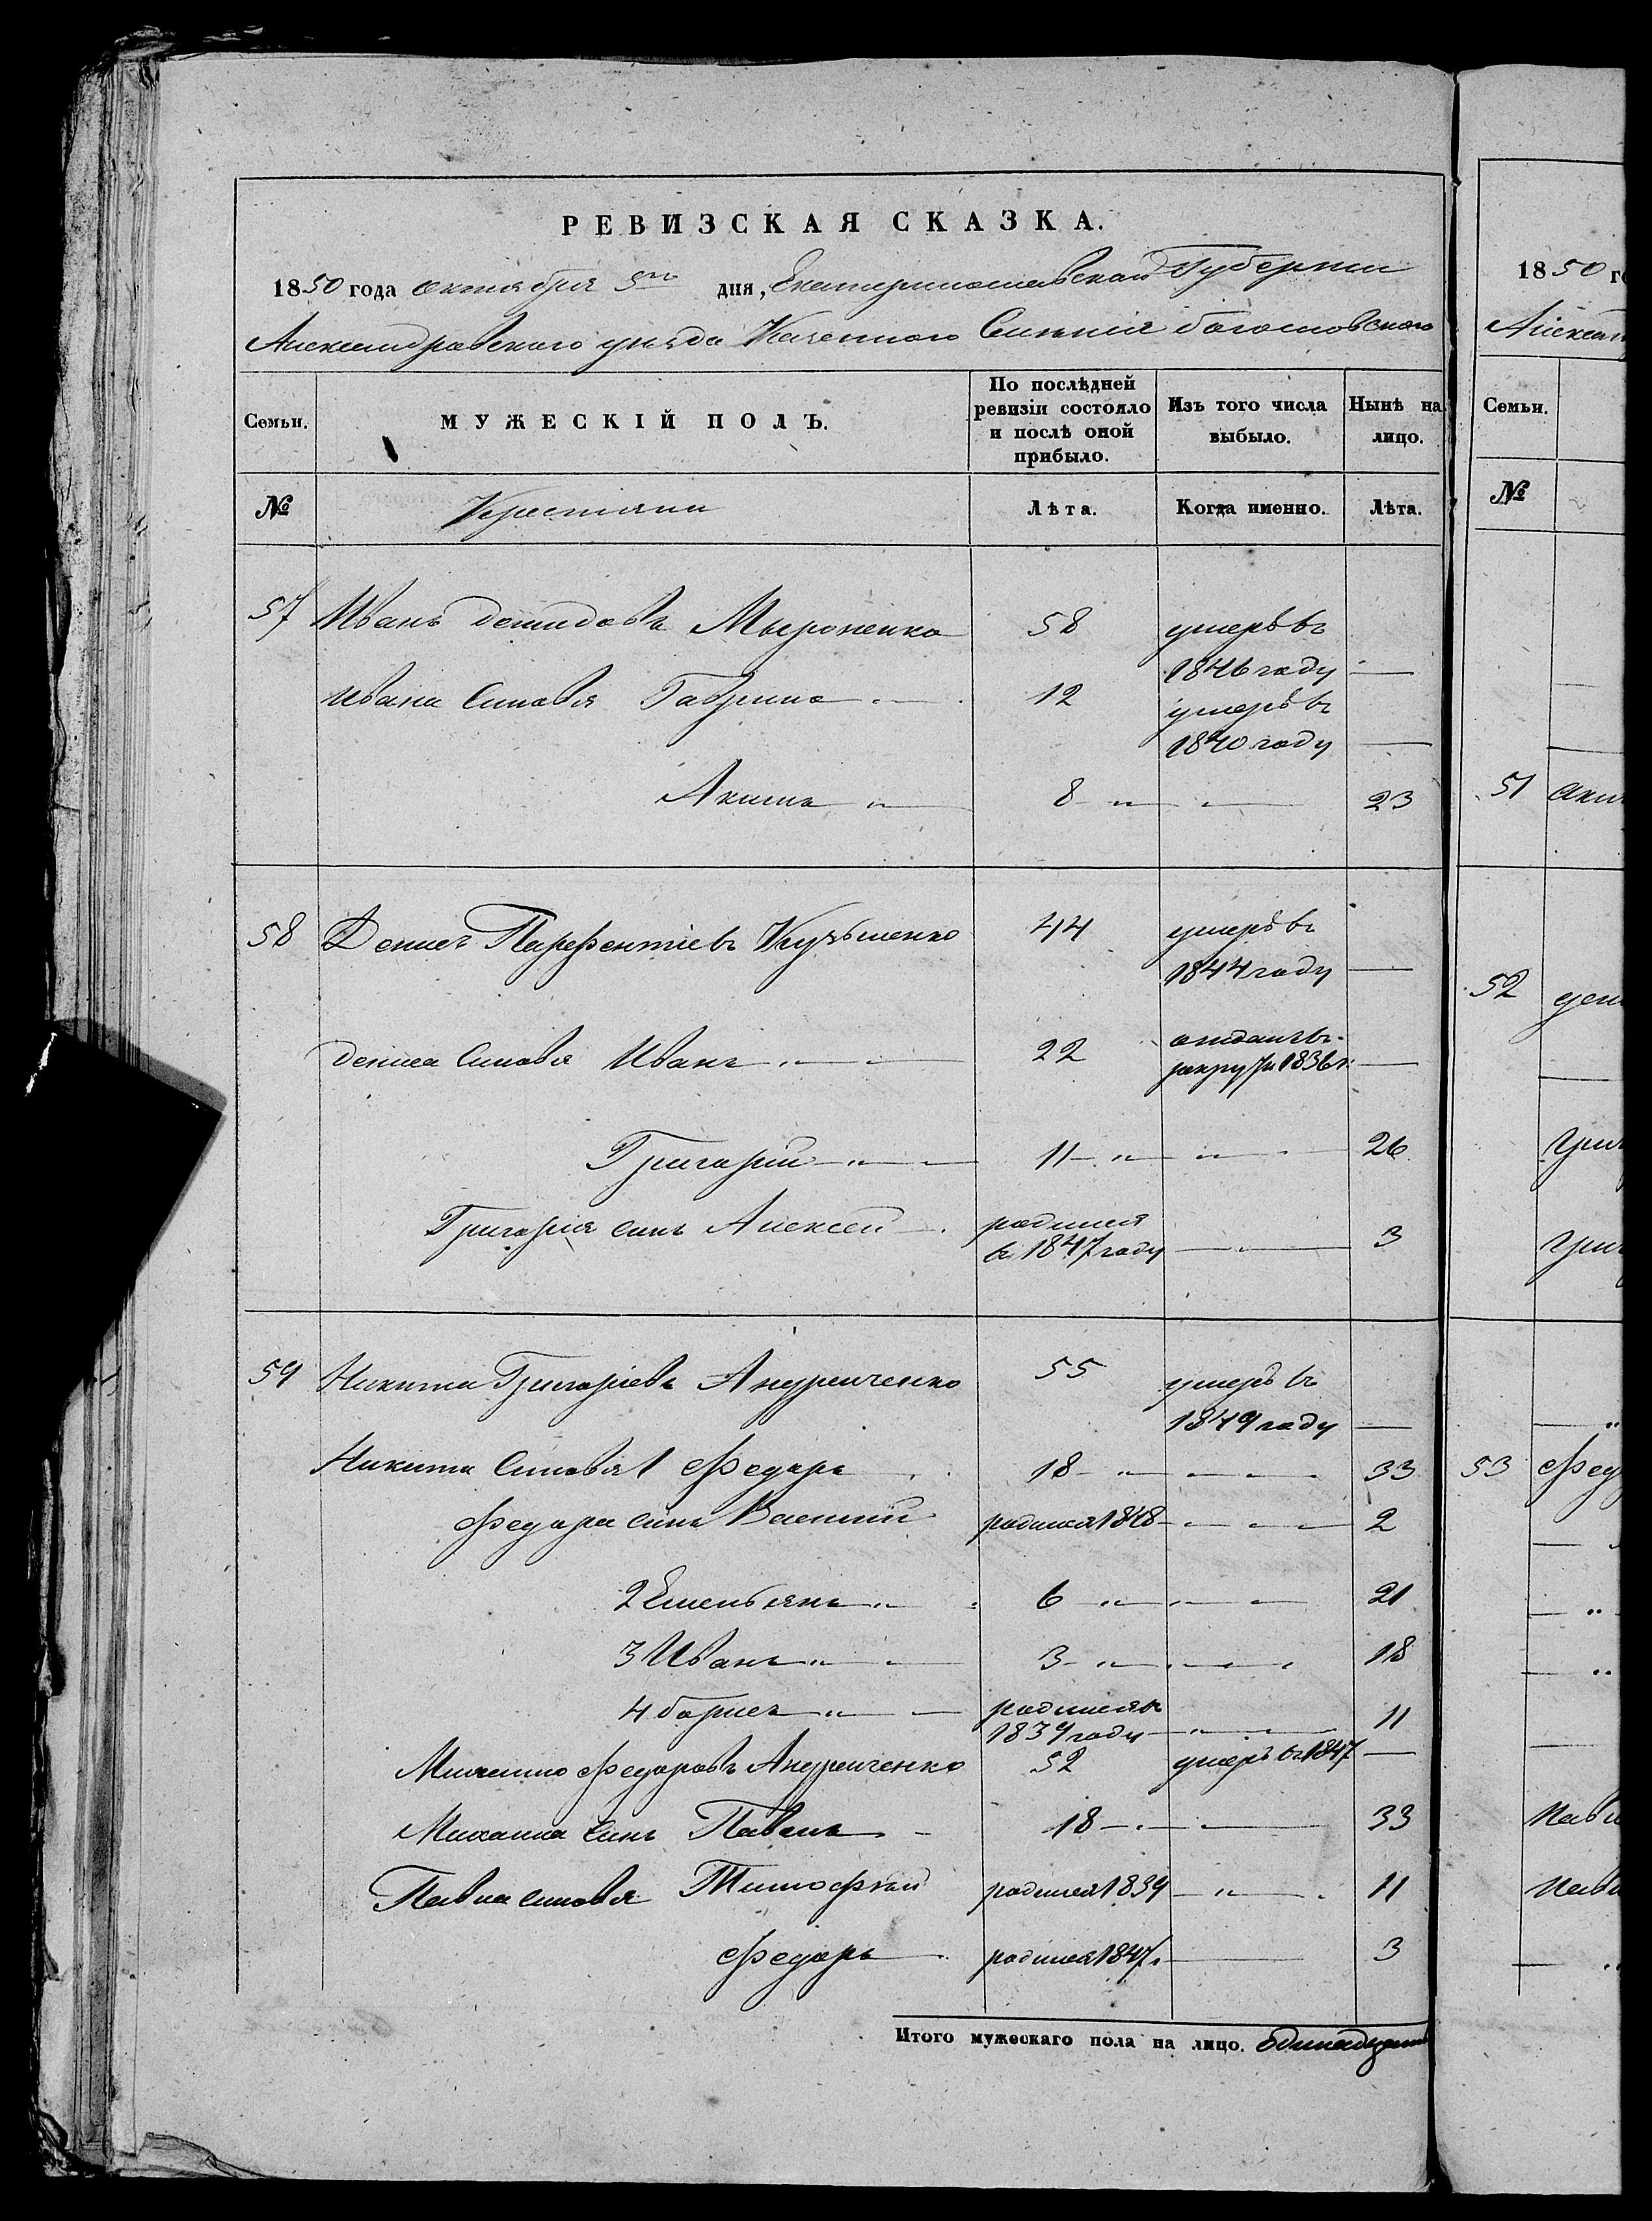 РЕВИЗСКАЯ СКАЗКА.
1850 года октября 5го дня, Екатеринославской Губернии
Александровского уезда Казенного Селения богословского
Семьи.
МУЖЕСКІЙ ПОЛЪ.
По послѣдней ревизіи состояло и послѣ оной прибыло.
Изъ того числа выбыло.
Нынѣ на лицо.
№ Крестьяни Лѣта. Когда именно. Лѣта.
57 Иванъ демидовъ Мыроненко 58 умеръ въ
1846 году —
Ивана Синовя Гаврило 12 умеръ въ
1840 году —
Акимъ 8 23
58 Денисъ Парфентіевъ Кузьменко 44 умеръ въ
1844 году —
дениса Синовя Иванъ 22 отданъ въ
рекруты 1836 г. —
Григорий 11 26
Григорія синъ Алексей родился
въ 1847 году 3
59 Никита Григоріевъ Андрейченко 55 умеръ въ
1849 году —
Никити Синовя 1 Федоръ 18 33
Федора синъ Василий родился 1848 2
2 Емельянъ 6 21
3 Иванъ 3 18
4 борисъ родился въ
1839 году 11
Михаило Федоровъ Андрейченко 52 умеръ въ 1847 —
Михаила Синъ Павелъ 18 33
Павла синовя Тимофѣй родился 1839 11
Федоръ родился 1847 г. 3
Итого мужескаго пола на лицо. Одинадцать
1850 го
Александ
Семьи.
№
51 аки
52 дени
Григ
Григ
53 Фед
Павл
Павл